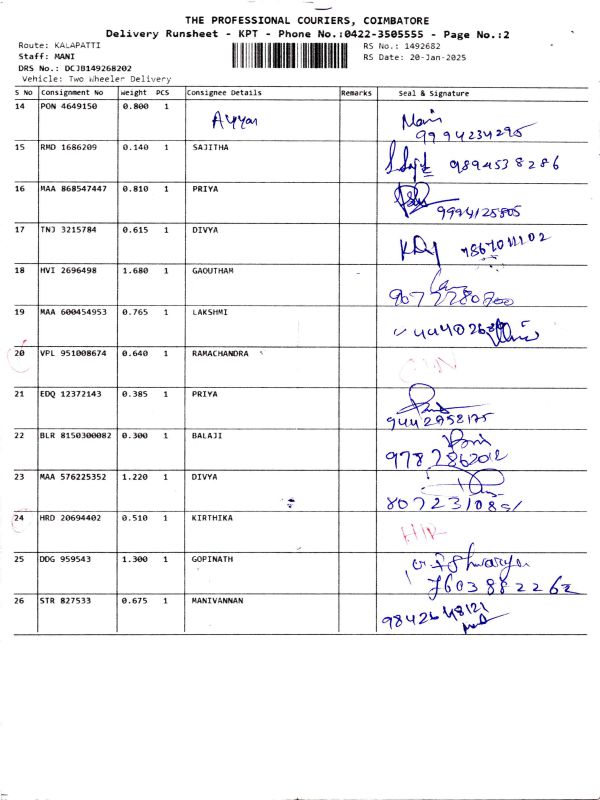 THE PROFESSIONAL COURIERS, COIMBATORE
Delivery Runsheet - KPT - Phone No.:0422-3505555 - Page No.:2
Route: KALAPATTI RS No.: 1492682
Staff: MANI RS Date: 20-Jan-2025
DRS No.: DCJB149268202
Vehicle: Two Wheeler Delivery
S No Consignment No Weight PCS Consignee Details Remarks Seal & Signature
14 PON 4649150 0.800 1 Ayyan Mani
9994234295
15 RMD 1686209 0.140 1 SAJITHA 9894538286
16 MAA 868547447 0.810 1 PRIYA
9994125805
17 TNJ 3215784 0.615 1 DIVYA
18 HVI 2696498 1.680 1 GAOUTHAM
19 MAA 600454953 0.765 1 LAKSHMI
20 VPL 951008674 0.640 1 RAMACHANDRA
21 EDQ 12372143 0.385 1 PRIYA
9442958175
22 BLR 8150300082 0.300 1 BALAJI
9787862012
23 MAA 576225352 1.220 1 DIVYA
24 HRD 20694402 0.510 1 KIRTHIKA
25 DDG 959543 1.300 1 GOPINATH
7603882262
26 STR 827533 0.675 1 MANIVANNAN 9842648121